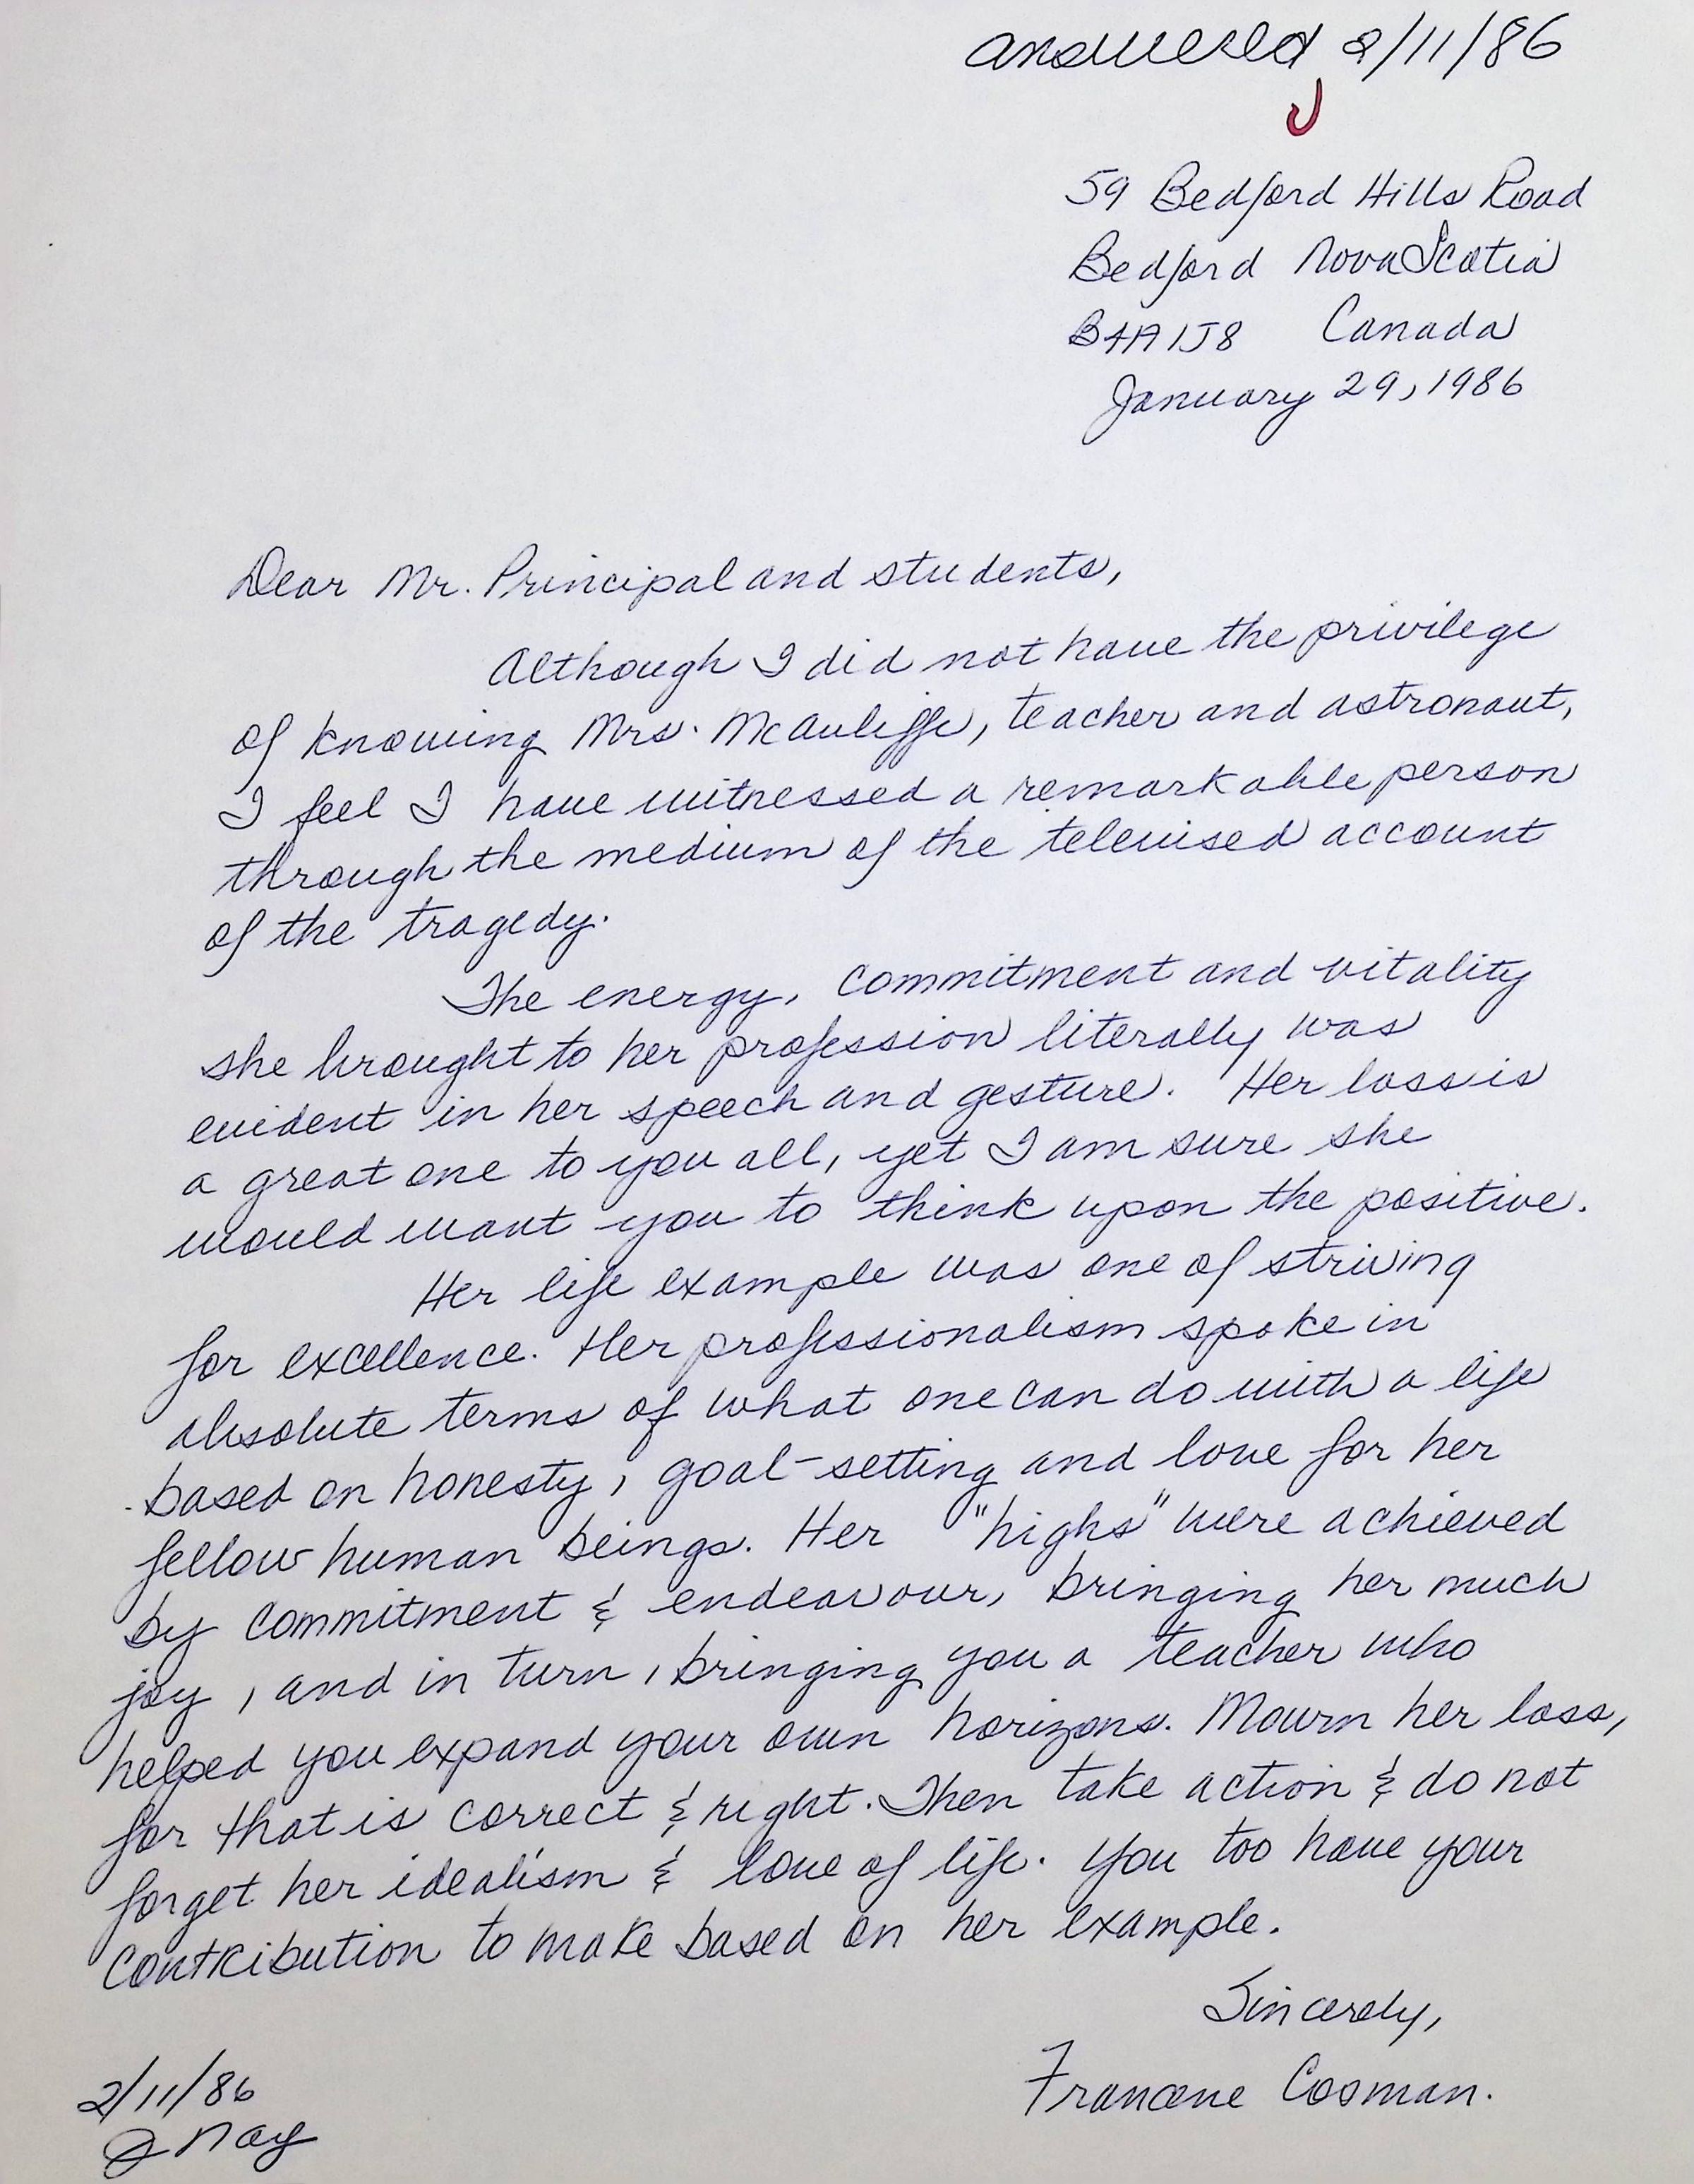 answered 2/11/86
59 Bedford Hills Road
Bedford Nova Scotia
B4A 1J8 Canada
January 29, 1986
Dear Mr. Principal and students,
Although I did not have the privilege
of knowing Mrs. McAuliffe, teacher and astronaut,
I feel I have witnessed a remarkable person
through the medium of the televised account
of the tragedy.
The energy, commitment and vitality
she brought to her profession literally was
evident in her speech and gesture. Her loss is
a great one to you all, yet I am sure she
would want you to think upon the positive.
Her life example was one of striving
for excellence. Her professionalism spoke in
absolute terms of what one can do with a life
based on honesty, goal-setting and love for her
fellow human beings. Her "highs" were achieved
by commitment & endeavour, bringing her much
joy, and in turn, bringing you a teacher who
helped you expand your own horizons. Mourn her loss,
for that is correct & right. Then take action & do not
forget her idealism & love of life. You too have your
contribution to make based on her example.
Sincerely,
Francene Cosman.
2/11/86